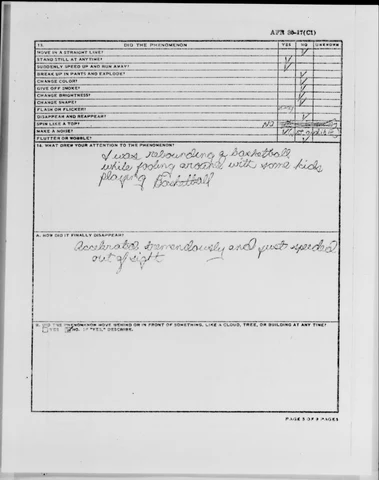 AFR 80-17(C1)
13. DID THE PHENOMENON YES NO UNKNOWN
MOVE IN A STRAIGHT LINE?
STAND STILL AT ANYTIME?
SUDDENLY SPEED UP AND RUN AWAY?
BREAK UP IN PARTS AND EXPLODE?
CHANGE COLOR?
GIVE OFF SMOKE?
CHANGE BRIGHTNESS?
CHANGE SHAPE?
FLASH OR FLICKER?
DISAPPEAR AND REAPPEAR?
SPIN LIKE A TOP? NO
MAKE A NOISE?
FLUTTER OR WOBBLE?
14. WHAT DREW YOUR ATTENTION TO THE PHENOMENON?
I was rebounding a basketball
while fooling around with some kids
playing Basketball
A. HOW DID IT FINALLY DISAPPEAR?
Accelerated tremendously and just speeded
out of sight
B. DID THE PHENOMENON MOVE BEHIND OR IN FRONT OF SOMETHING, LIKE A CLOUD, TREE, OR BUILDING AT ANY TIME?
YES NO. IF "YES," DESCRIBE.
PAGE 5 OF 8 PAGES